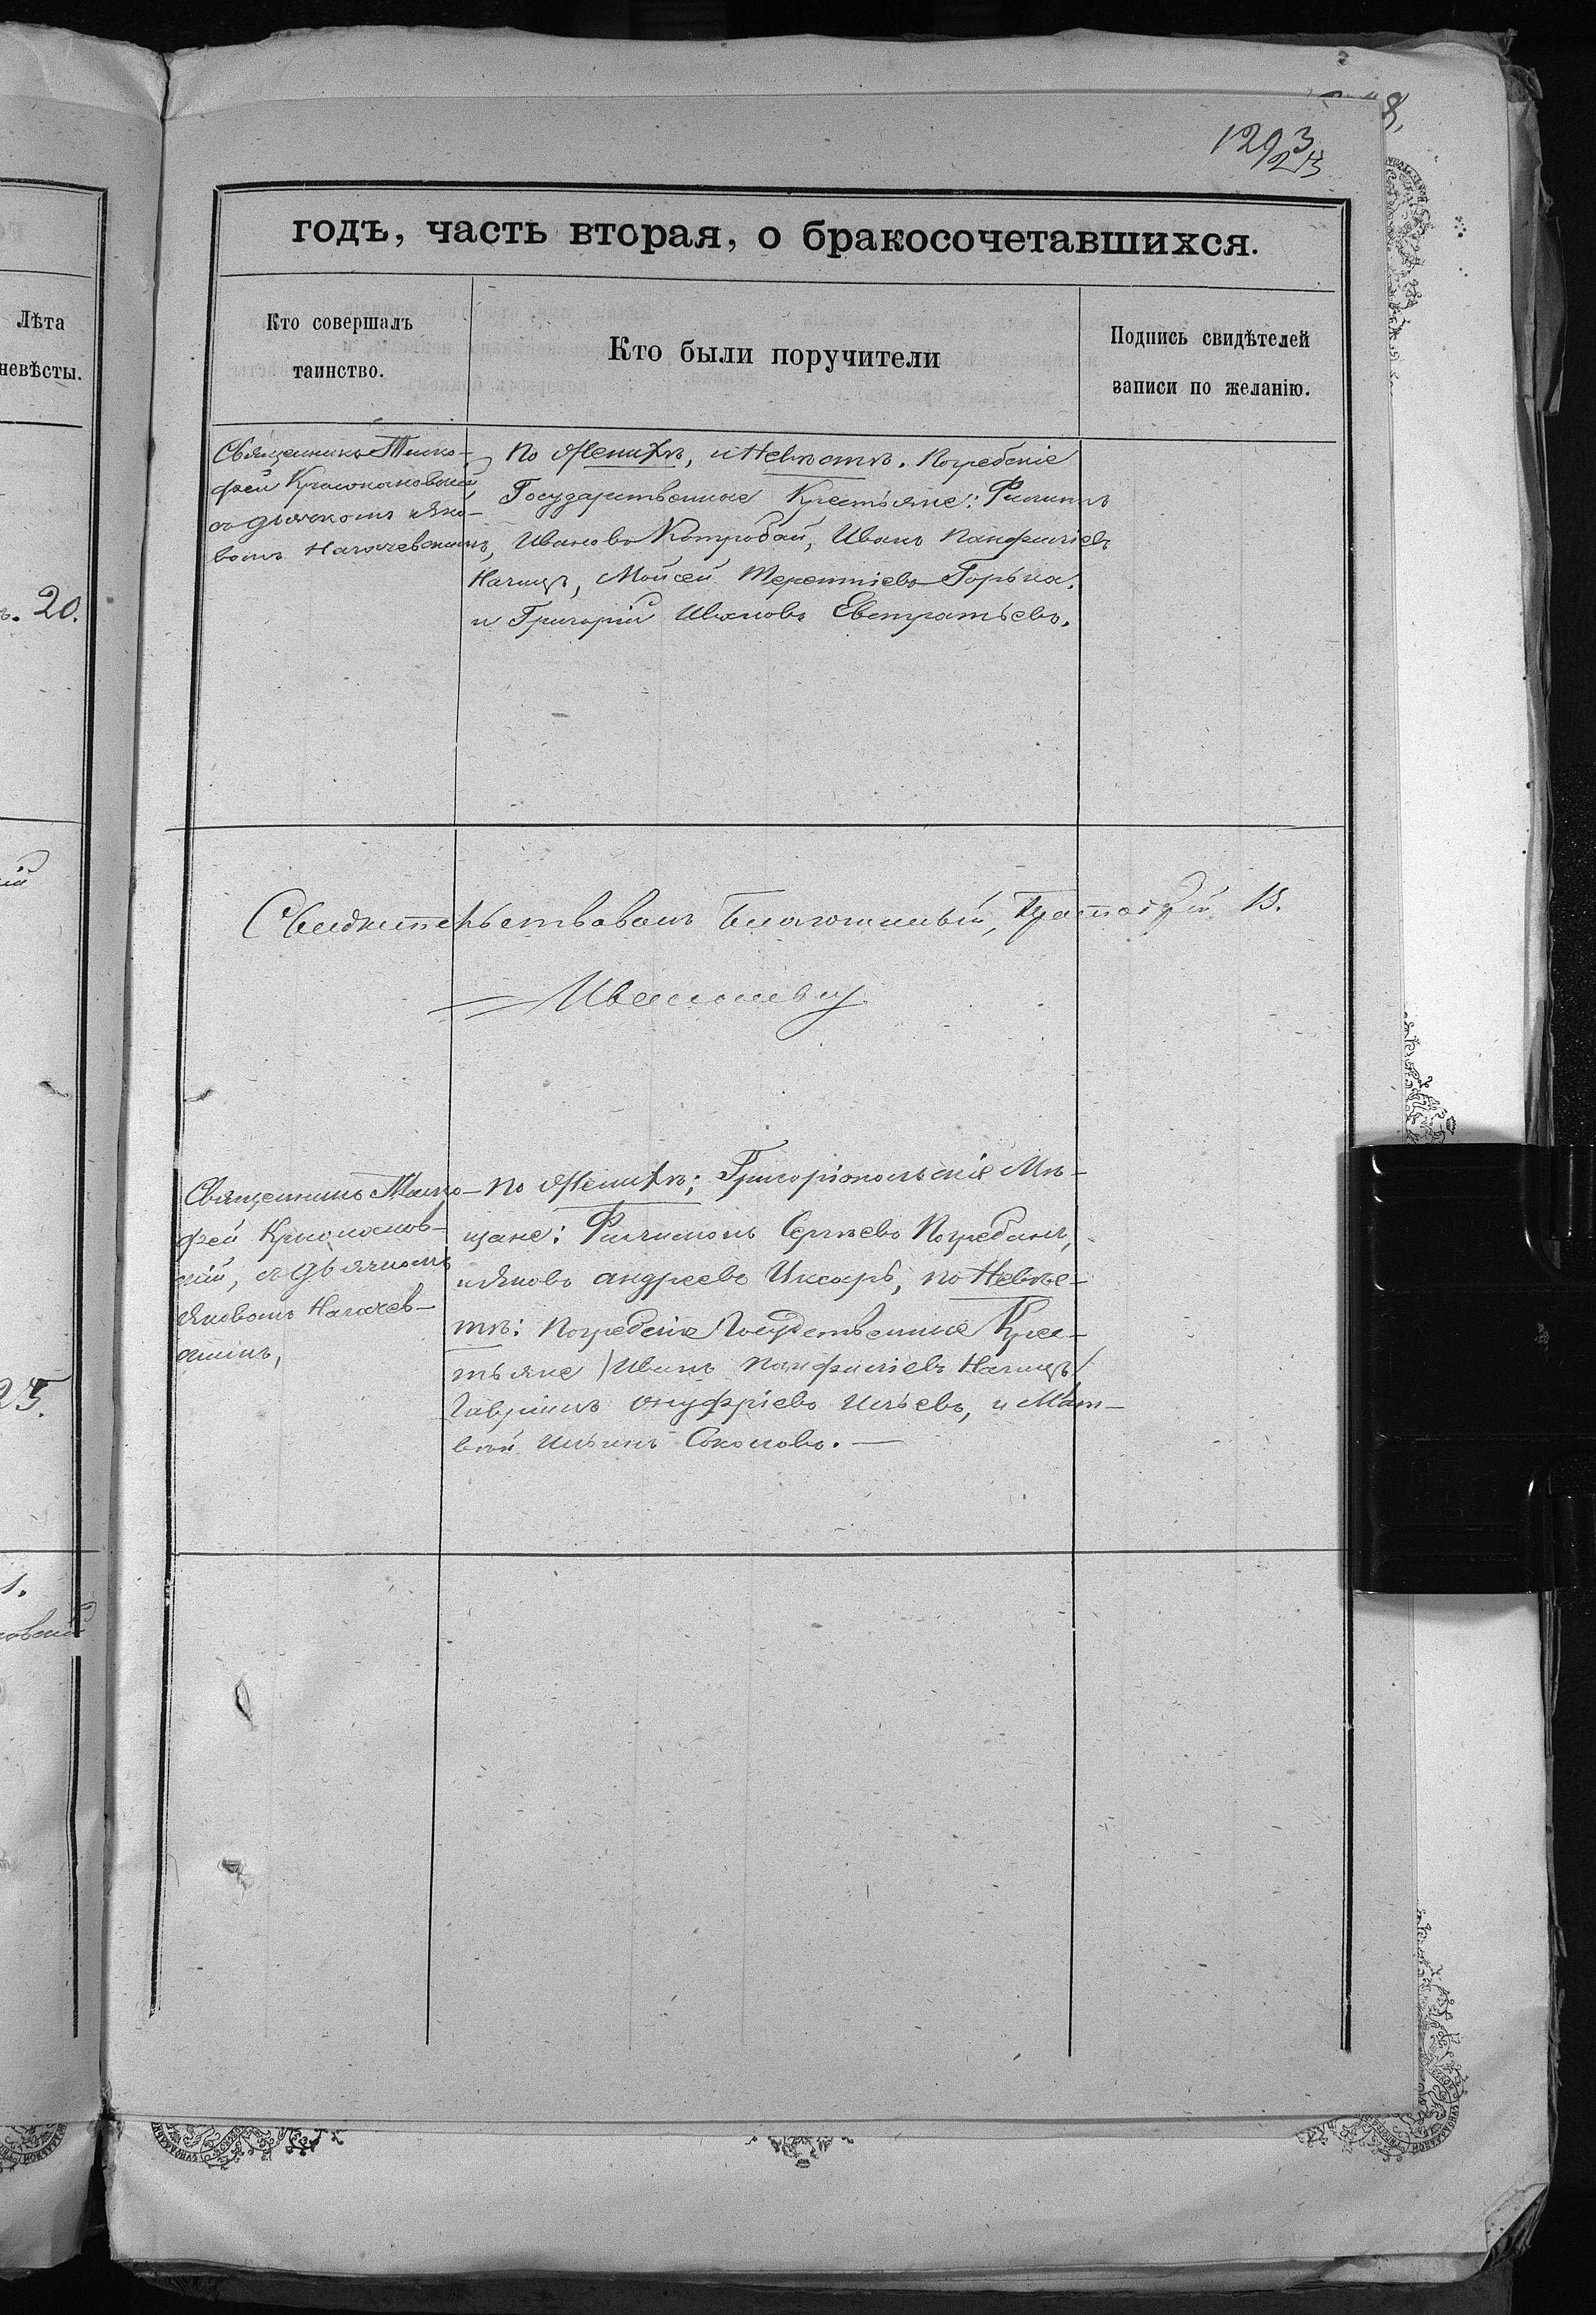 1293
23
годъ, часть вторая, о бракосочетавшихся.
Лѣта
невѣсты.
Кто совершалъ
таинство.
Кто были поручители
Подпись свидѣтелей
записи по желанію.
20.
Священникъ Тимо-
фей
съ дьячкомъ Яко-
вомъ
По Женихѣ, и Невѣстѣ. Погребскіе
Государственные Крестьяне: Филиппъ
Ивановъ Котробай, Иванъ Панфиліевъ
Мойсей Терентіевъ Горька.
и Григорій Ивановъ Евтратьевъ.
Свидѣтельствовалъ Благочинный, Протоіерей В.
25.
Священникъ Тимо-
фей
скій, съ Дьячкомъ
Яковомъ
По Женихѣ; Григоріопольскіе Мѣ-
щане: Филимонъ Сергѣевъ Погребанъ,
и Яковъ Андреевъ Иксарь, по Невѣс-
тѣ: Погребскіе Государственные Крес-
тьяне Иванъ Панфиліевъ
Гавріилъ Онуфріевъ Ильевъ, и Мат-
вѣй Ильинъ Соколовъ. —